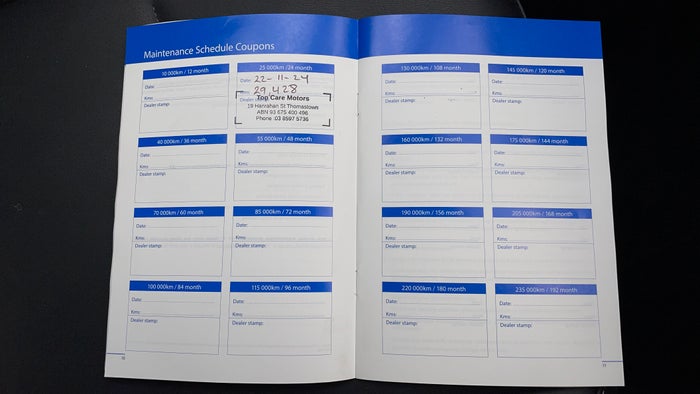 Maintenance Schedule Coupons
10 000km / 12 month
Date:
Kms:
Dealer stamp:
25 000km / 24 month
Date: 22-11-24
Kms: 29,428
Dealer
Top Care Motors
19 Hanrahan St Thomastown
ABN 93 675 400 496
Phone :03 8597 5736
40 000km / 36 month
Date:
Kms:
Dealer stamp:
55 000km / 48 month
Date:
Kms:
Dealer stamp:
70 000km / 60 month
Date:
Kms:
Dealer stamp:
85 000km / 72 month
Date:
Kms:
Dealer stamp:
100 000km / 84 month
Date:
Kms:
Dealer stamp:
115 000km / 96 month
Date:
Kms:
Dealer stamp:
10
130 000km / 108 month
Date:
Kms:
Dealer stamp:
145 000km / 120 month
Date:
Kms:
Dealer stamp:
160 000km / 132 month
Date:
Kms:
Dealer stamp:
175 000km / 144 month
Date:
Kms:
Dealer stamp:
190 000km / 156 month
Date:
Kms:
Dealer stamp:
205 000km / 168 month
Date:
Kms:
Dealer stamp:
220 000km / 180 month
Date:
Kms:
Dealer stamp:
235 000km / 192 month
Date:
Kms:
Dealer stamp:
11